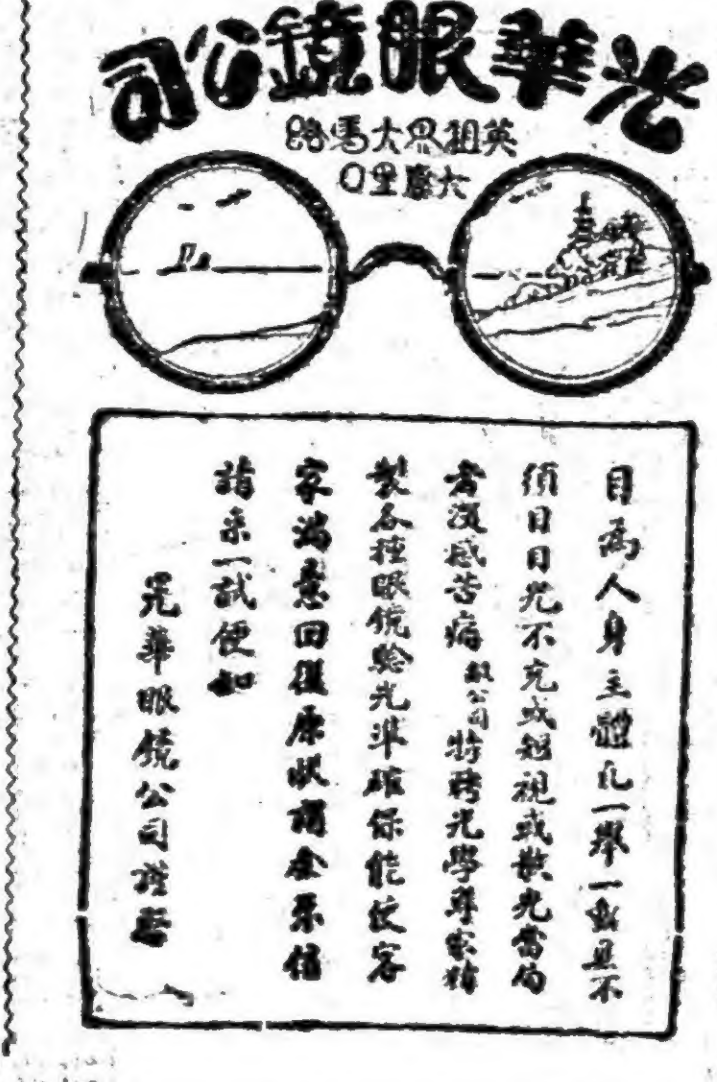 光華眼鏡公司
英租界大馬路
大慶里口
目為人身主體凡一舉一動且不
須目目光不充或短視或散光當局
者深感苦痛敝公司特聘光學專家精
製各種眼鏡驗光準確保能使客
家滿意回復原狀
請來一試便知
光華眼鏡公司謹啓